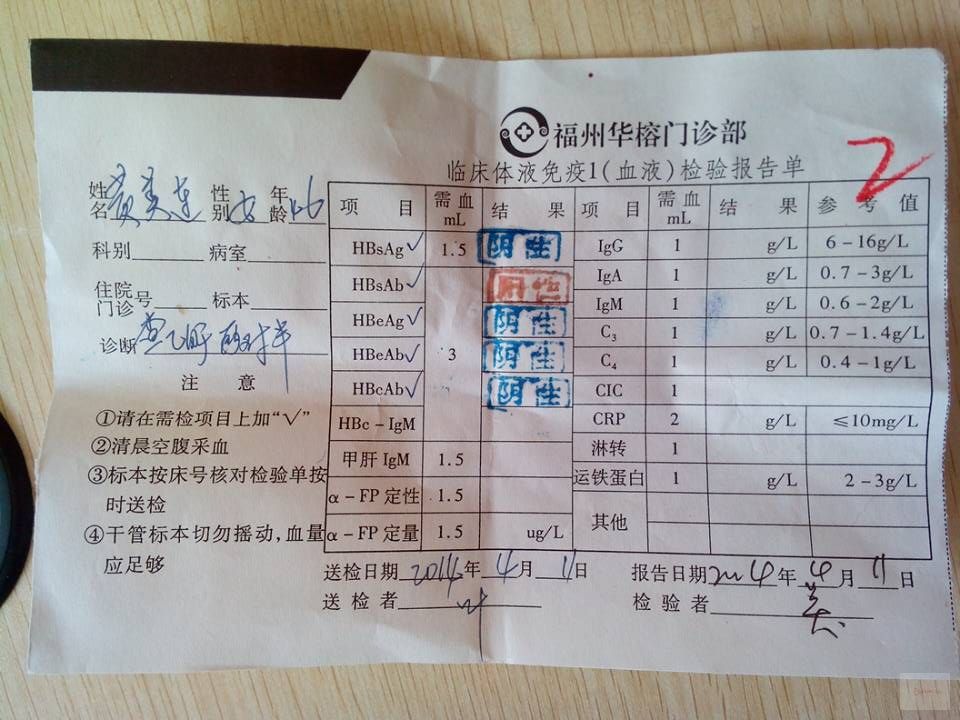 福州华榕门诊部
临床体液免疫1(血液)检验报告单
2
姓名 黄美 性别 女 年龄 26
科别 病室
住院门诊号 标本
诊断
注 意
①请在需检项目上加“√”
②清晨空腹采血
③标本按床号核对检验单按
时送检
④干管标本切勿摇动,血量
应足够
项 目 需血mL 结 果 项 目 需血mL 结 果 参考值
HBsAg √ 1.5 阴性 IgG 1 g/L 6-16g/L
HBsAb √ 阳性 IgA 1 g/L 0.7-3g/L
HBeAg √ 阴性 IgM 1 g/L 0.6-2g/L
HBeAb √ 3 阴性 C₃ 1 g/L 0.7-1.4g/L
HBcAb √ 阴性 C₄ 1 g/L 0.4-1g/L
CIC 1
HBc-IgM CRP 2 g/L ≤10mg/L
甲肝IgM 1.5 淋转 1
α-FP定性 1.5 运铁蛋白 1 g/L 2-3g/L
α-FP定量 1.5 ug/L 其他
送检日期 2014年4月11日 报告日期 2014年4月11日
送检者 检验者